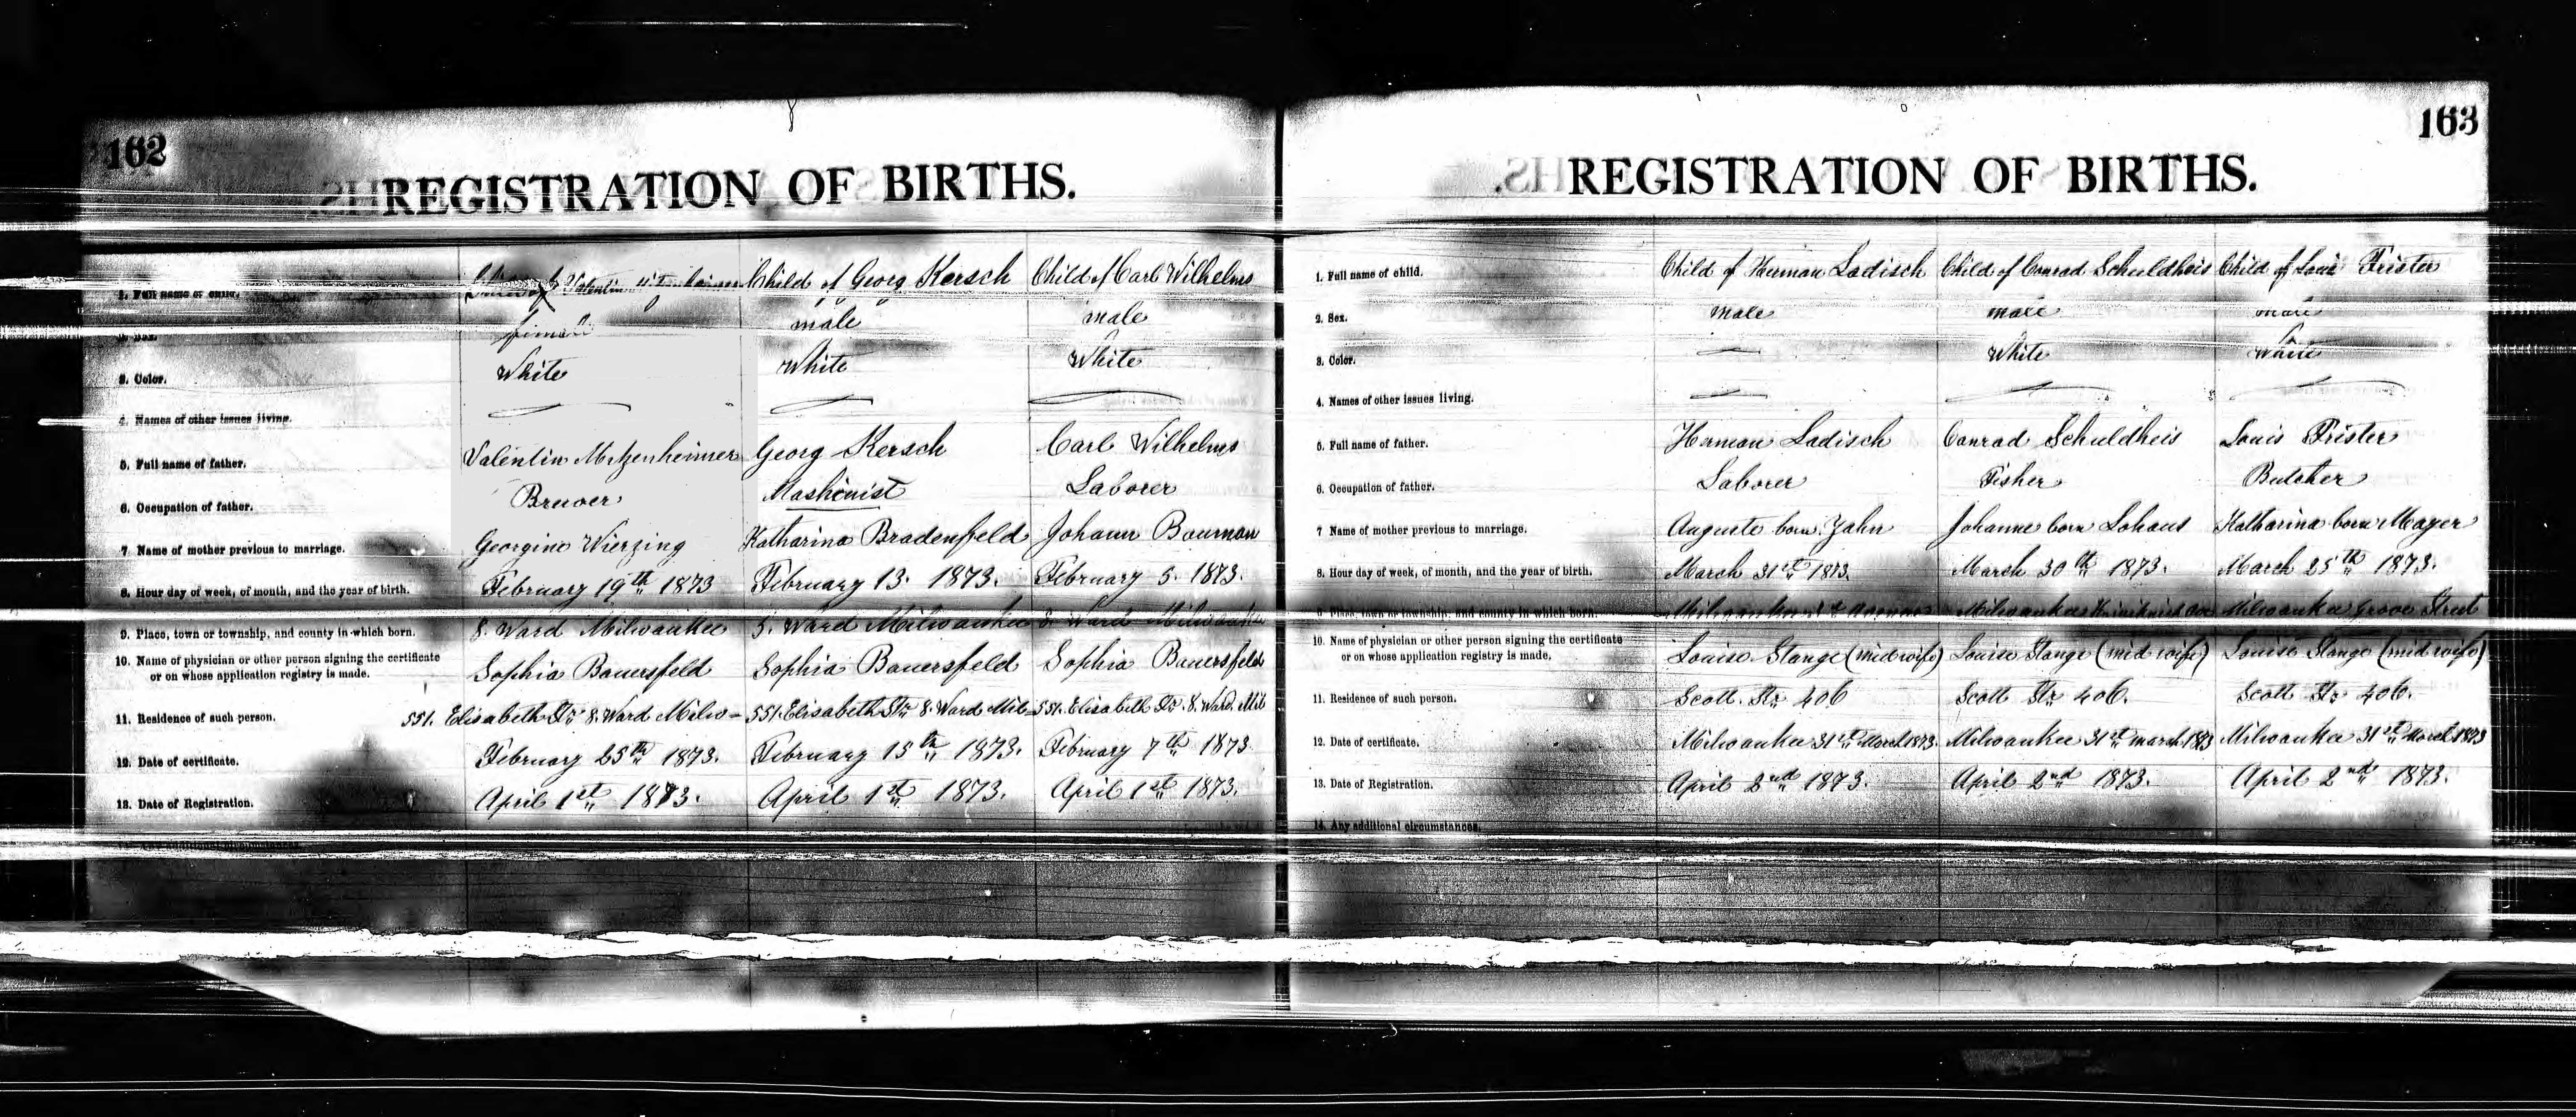 162
REGISTRATION OF BIRTHS.
1. Full name of child. Valentin Child of Georg Kersch Child of Carl Wilhelms
2. Sex. female male male
3. Color. White White White
4. Names of other issues living.
5. Full name of father. Valentin Metzenheimer Georg Kersch Carl Wilhelms
6. Occupation of father. Brewer Mashinist Laborer
7 Name of mother previous to marriage. Georgine Wierzing Katharina Bradenfeld Johann Bauman
8. Hour day of week, of month, and the year of birth. February 19th 1873 February 13. 1873. February 5. 1873.
9. Place, town or township, and county in which born. 8. Ward Milwaukee 5. Ward Milwaukee 8. Ward Milwaukee
10. Name of physician or other person signing the certificate
or on whose application registry is made. Sophia Bauersfeld Sophia Bauersfeld Sophia Bauersfeld
11. Residence of such person. 551. Elisabeth Str 8. Ward Milw- 551. Elisabeth Str 8. Ward Mil- 551. Elisabeth Str. 8. Ward. Mil
12. Date of certificate. February 25th 1873. February 15th 1873. February 7th 1873
13. Date of Registration. April 1st 1873. April 1st 1873. April 1st 1873.
163
REGISTRATION OF BIRTHS.
1. Full name of child. Child of Herman Ladisch Child of Conrad Schuldheis Child of Louis Frister
2. Sex. male male male
3. Color. White White
4. Names of other issues living.
5. Full name of father. Herman Ladisch Conrad Schuldheis Louis Frister
6. Occupation of father. Laborer Fisher Butcher
7 Name of mother previous to marriage. Auguste born Jahn Johanne born Lohaus Katharina born Mayer
8. Hour day of week, of month, and the year of birth. March 31st 1873. March 30th 1873. March 25th 1873.
9. Place, town or township, and county in which born. Milwaukee Milwaukee Milwaukee Grove Street
10. Name of physician or other person signing the certificate
or on whose application registry is made. Louise Stange (midwife) Louise Stange (mid wife) Louise Stange (midwife)
11. Residence of such person. Scott. Str. 406 Scott Str. 406. Scott Str. 406.
12. Date of certificate. Milwaukee 31st March 1873. Milwaukee 31st march 1873 Milwaukee 31st March 1873
13. Date of Registration. April 2nd 1873. April 2nd 1873. April 2nd 1873.
14. Any additional circumstances.